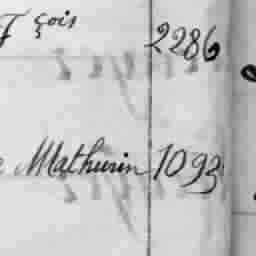 Fçois 2286
Mathurin 1093